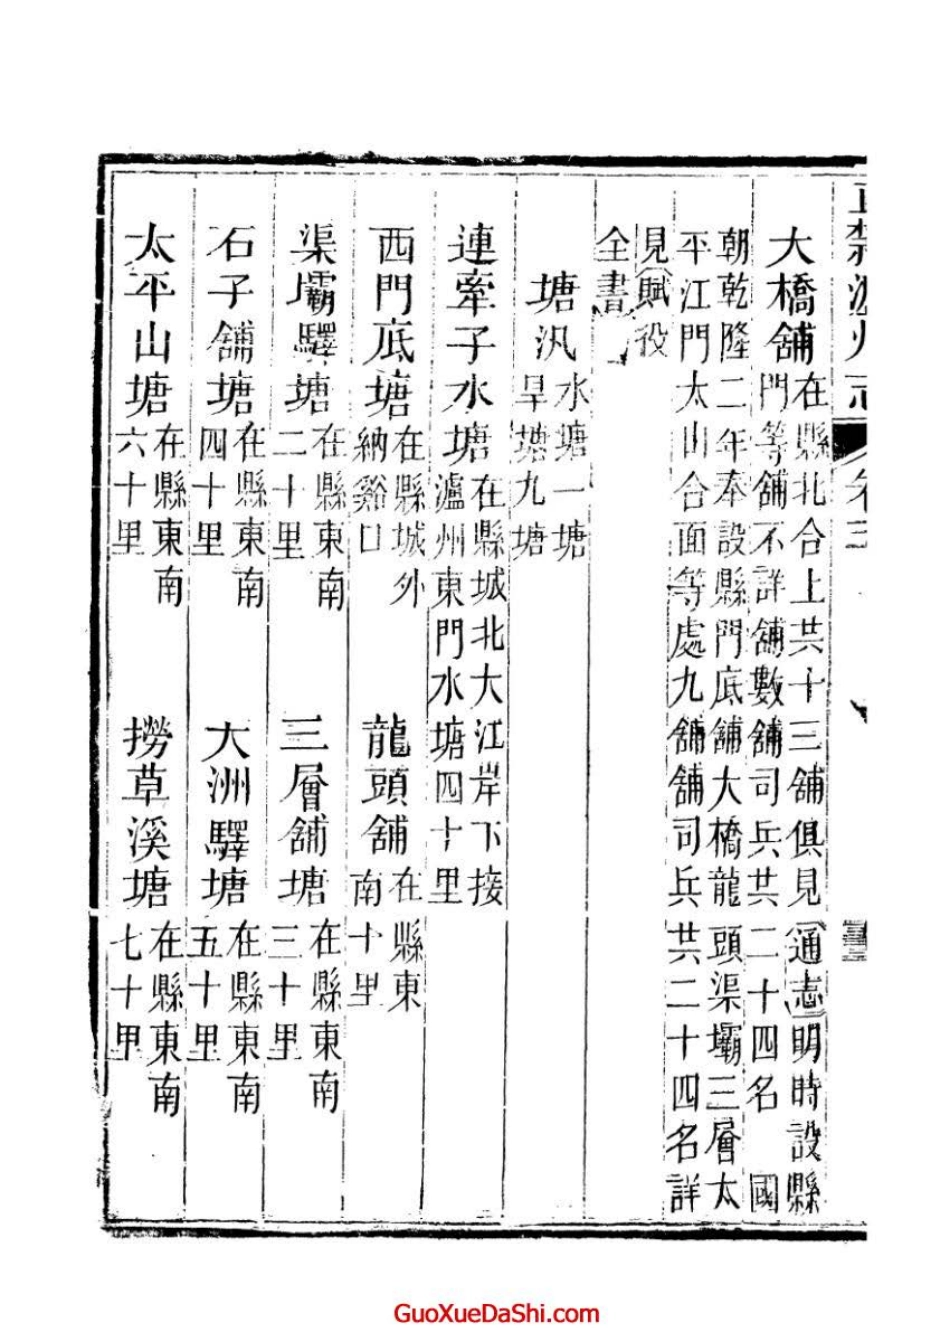 直隸瀘州志 卷三
大橋舖在縣北合上共十三舖俱見通志明時設縣
門等舖不詳舖數舖司兵共二十四名 國
朝乾隆二年奉設縣門底舖大橋龍頭渠壩三層太
平江門太山合面等處九舖舖司兵共二十四名詳
見賦役
全書
塘汛水塘一塘
旱塘九塘
連牽子水塘在縣城北大江岸下接
瀘州東門水塘四十里
西門底塘在縣城外
納谿口
龍頭舖在縣東
南十里
渠壩驛塘在縣東南
二十里
三層舖塘在縣東南
三十里
石子舖塘在縣東南
四十里
大洲驛塘在縣東南
五十里
太平山塘在縣東南
六十里
撈草溪塘在縣東南
七十里
GuoXueDaShi.com